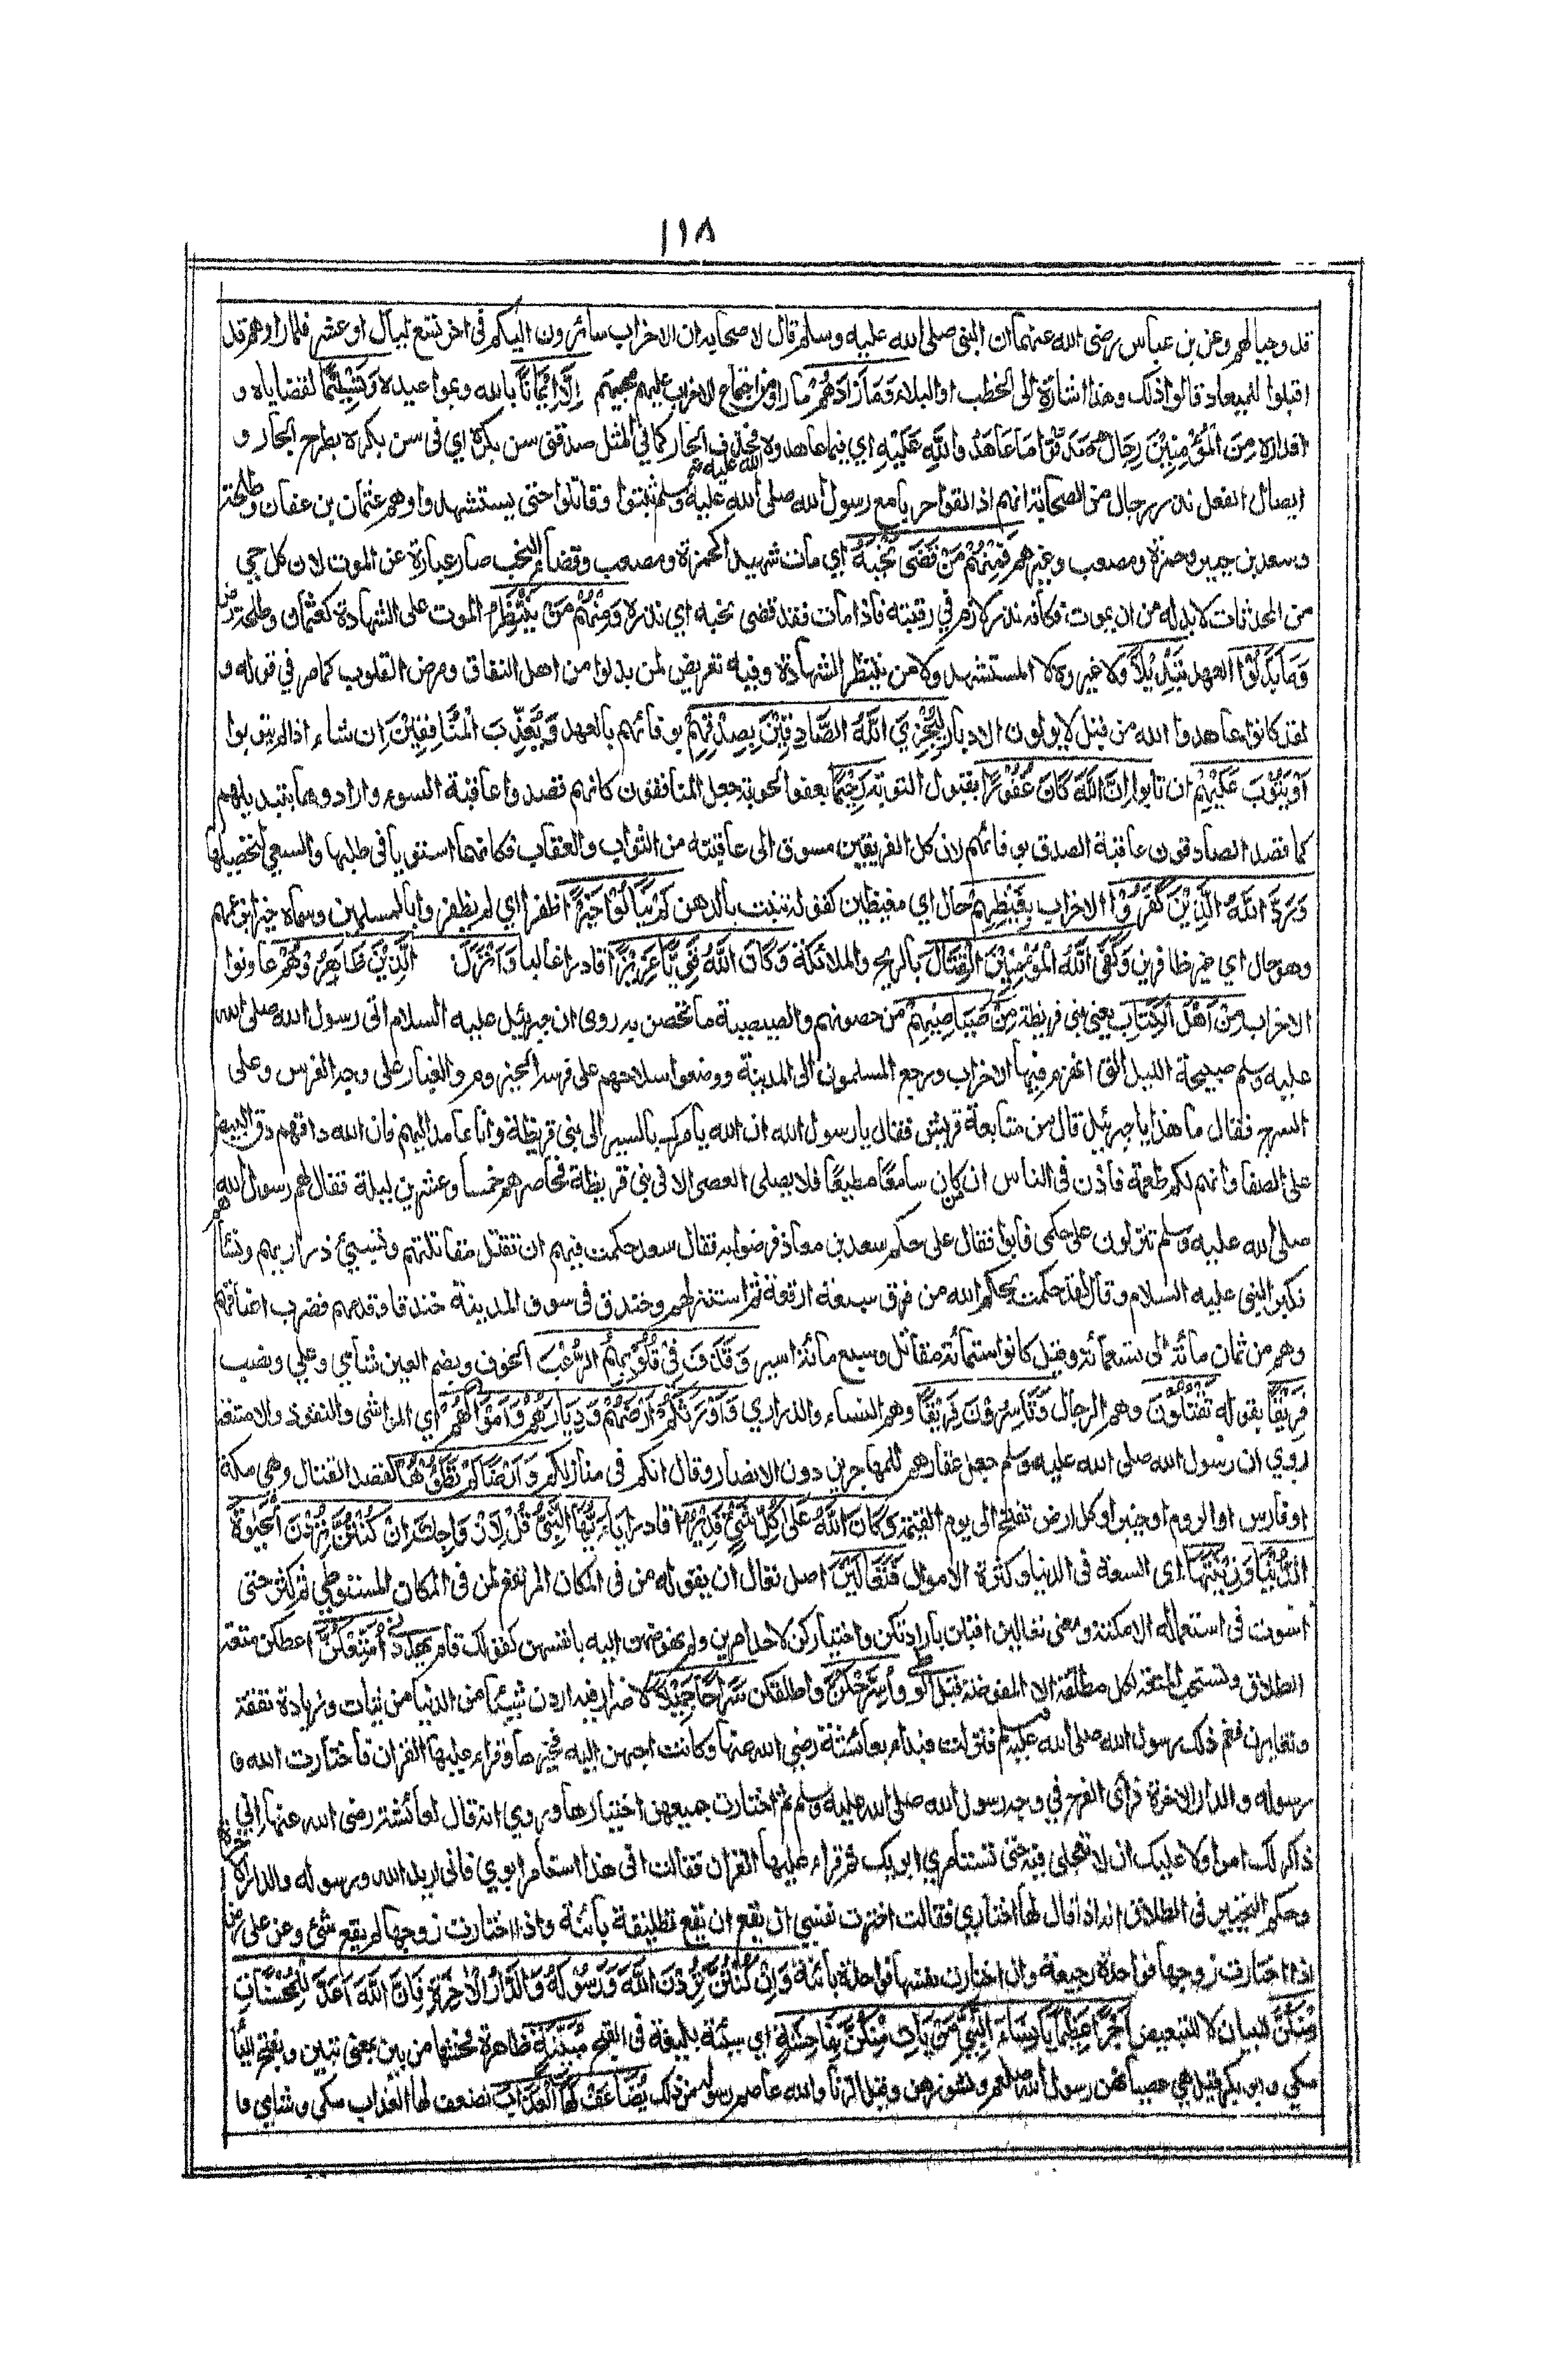 ١١٨
قد وجبا لهم وعن بن عباس رضى الله عنهما ان النبى صلى الله عليه وسلم قال لا صحابه ان الاحزاب سائرون اليكم فى اخر تسع ليال او عشر فلما راوهم قد
اقبلوا للميعاد قالوا ذلك وهذا اشارة الى الخطب او البلاء وَمَا زَادَهُمْ ما راوا من اجتماع الاحزاب عليهم ومجيئهم اِلَّا اِيْمَانًا بالله وبمواعيده وَتَسْلِيْمًا لقضاياه و
اقداره مِنَ الْمُؤْمِنِيْنَ رِجَالٌ صَدَقُوْا مَا عَاهَدُوا اللّٰهَ عَلَيْهِ اي فيما عاهدوه فحذف الجار كما في المثل صدقنى سن بكره اي فى سن بكره بطرح الجار و
ايصال الفعل نذر رجال من الصحابة انهم اذا لقوا حربا مع رسول الله صلى الله عليه وسلم ثبتوا وقاتلوا حتى يستشهدوا وهم عثمان بن عفان وطلحة
وسعد بن جبير وحمزة ومصعب وغيرهم فَمِنْهُمْ مَنْ قَضٰى نَحْبَهٗ اي مات شهيدا كحمزة ومصعب وقضاء النحب صار عبارة عن الموت لان كل حي
من المحدثات لا بد له من ان يموت فكانه نذر لازم في رقبته فاذا مات فقد قضى نحبه اي نذره وَمِنْهُمْ مَنْ يَّنْتَظِرُ الموت على الشهادة كعثمان وطلحة رض
وَمَا بَدَّلُوْا العهد تَبْدِيْلًا ولا غيروه لا المستشهد ولا من ينتظر الشهادة وفيه تعريض لمن بدلوا من اهل النفاق ومرض القلوب كما مر في قوله و
لقد كانوا عاهدوا الله من قبل لا يولون الادبار لِيَجْزِيَ اللّٰهُ الصَّادِقِيْنَ بِصِدْقِهِمْ بوفائهم بالعهد وَيُعَذِّبَ الْمُنَافِقِيْنَ اِن شاء اذا لم يتوبوا
اَوْ يَتُوْبَ عَلَيْهِمْ ان تابوا اِنَّ اللّٰهَ كَانَ غَفُوْرًا بقبول التوبة رَحِيْمًا بعفو الحوبة جعل المنافقون كانهم قصدوا عاقبة السوء وارادوها بتبديلهم
كما قصد الصادقون عاقبة الصدق بوفائهم لان كل الفريقين مسوق الى عاقبته من الثواب والعقاب فكانهما استويا فى طلبها والسعي لتحصيلها
وَرَدَّ اللّٰهُ الَّذِيْنَ كَفَرُوْا الاحزاب بِغَيْظِهِمْ حال اي مغيظين كقوله تنبت بالدهن لَمْ يَنَالُوْا خَيْرًا ظفرا اي لم يظفروا بالمسلمين وسماه خيرا بزعمهم
وهو حال اي غير ظافرين وَكَفَى اللّٰهُ الْمُؤْمِنِيْنَ الْقِتَالَ بالريح والملائكة وَكَانَ اللّٰهُ قَوِيًّا عَزِيْزًا قادرا غالبا وَاَنْزَلَ الَّذِيْنَ ظَاهَرُوْهُمْ عاونوا
الاحزاب مِنْ اَهْلِ الْكِتَابِ يعنى بنى قريظة مِنْ صَيَاصِيْهِمْ من حصونهم والصيصية ما تحصن به روى ان جبرئيل عليه السلام اتى رسول الله صلى الله
عليه وسلم صبيحة الليل التى انهزم فيها الاحزاب ورجع المسلمون الى المدينة ووضعوا سلاحهم على فرسه الحيزوم والغبار على وجه الفرس وعلى
السرج فقال ما هذا يا جبرئيل قال من متابعة قريش فقال يا رسول الله ان الله يامرك بالسير الى بنى قريظة وانا عامد اليهم فان الله داقهم دق البيض
على الصفا وانهم لكم طعمة فاذن فى الناس ان من كان سامعا مطيعا فلا يصلى العصر الا فى بنى قريظة فحاصرهم خمسا وعشرين ليلة فقال لهم رسول الله
صلى الله عليه وسلم تنزلون على حكمى فابوا فقال على حكم سعد بن معاذ فرضوا به فقال سعد حكمت فيهم ان تقتل مقاتلتهم وتسبىٰ ذراريهم ونساؤهم
فكبر النبى عليه السلام وقال لقد حكمت بحكم الله من فوق سبعة ارقعة ثم استنزلهم وخندق فى سوق المدينة خندقا وقدمهم فضرب اعناقهم
وهم من ثمان مائة الى تسعمائة وقيل كانوا ستمائة مقاتل وسبع مائة اسير وَقَذَفَ فِيْ قُلُوْبِهِمُ الرُّعْبَ الخوف وبضم العين شامي وعلي ونصب
فَرِيْقًا بقوله تَقْتُلُوْنَ وهم الرجال وَتَاسِرُوْنَ فَرِيْقًا وهم النساء والذراري وَاَوْرَثَكُمْ اَرْضَهُمْ وَدِيَارَهُمْ وَاَمْوَالَهُمْ اي المواشى والنقود والامتعة
روي ان رسول الله صلى الله عليه وسلم جعل عقارهم للمهاجرين دون الانصار وقال انكم فى منازلكم وَاَرْضًا لَمْ تَطَؤُوْهَا لقصد القتال وهي مكة
او فارس او الروم او خيبر او كل ارض تفتح الى يوم القيمة وَكَانَ اللّٰهُ عَلٰى كُلِّ شَيْءٍ قَدِيْرًا قادرا يٰاَيُّهَا النَّبِيُّ قُلْ لِاَزْوَاجِكَ اِنْ كُنْتُنَّ تُرِدْنَ الْحَيٰوةَ
الدُّنْيَا وَزِيْنَتَهَا اى السعة فى الدنيا وكثرة الاموال فَتَعَالَيْنَ اصل تعال ان يقوله من فى المكان المرتفع لمن فى المكان المستوطي ثم كثر حتى
استوت فى استعماله الامكنة ومعنى تعالين اقبلن بارادتكن واختياركن لاحد امرين ولم يرد نهوضهن اليه بانفسهن كقولك قام يهددني اُمَتِّعْكُنَّ اعطكن متعة
الطلاق وتستحب المتعة لكل مطلقة الا المفوضة قبل الوطى وَاُسَرِّحْكُنَّ واطلقكن سَرَاحًا جَمِيْلًا لا ضرار فيه اردن شيئا من الدنيا من ثياب وزيادة نفقة
وتغايرن فغم ذلك رسول الله صلى الله عليه وسلم فنزلت فبدا بعائشة رضي الله عنها وكانت احبهن اليه فخيرها وقراء عليها القران فاختارت الله و
رسوله والدار الاخرة فراى الفرح في وجه رسول الله صلى الله عليه وسلم ثم اختارت جميعهن اختيارها وروي انه قال لعائشة رضى الله عنها اني
ذاكر لك امرا ولا عليك ان لا تعجلى فيه حتى تستامري ابويك ثم قراء عليها القران فقالت افى هذا استامر ابوي فانى اريد الله ورسوله والدار الاخرة
وحكم التخيير فى الطلاق انه اذا قال لها اختاري فقالت اخترت نفسي ان يقع ان يقع تطليقة بائنة واذا اختارت زوجها لم يقع شئ وعن على رض
اذا اختارت زوجها فواحدة رجعية وان اختارت نفسها فواحدة بائنة وَاِنْ كُنْتُنَّ تُرِدْنَ اللّٰهَ وَرَسُوْلَهٗ وَالدَّارَ الْاٰخِرَةَ فَاِنَّ اللّٰهَ اَعَدَّ لِلْمُحْسِنَاتِ
مِنْكُنَّ للبيان لا للتبعيض اَجْرًا عَظِيْمًا يَانِسَاءَ النَّبِيِّ مَنْ يَّاتِ مِنْكُنَّ بِفَاحِشَةٍ اي سيئة بليغة فى القبح مُبَيِّنَةٍ ظاهرة فحشها من بين بمعنى تبين وبفتح الياء
مكي وابو بكر قيل هي عصيانهن رسول الله صلعم ونشوزهن وقيل الزنا والله عاصم رسوله من ذلك يُضَاعَفْ لَهَا الْعَذَابُ نضعف لها العذاب مكى وشامي وا